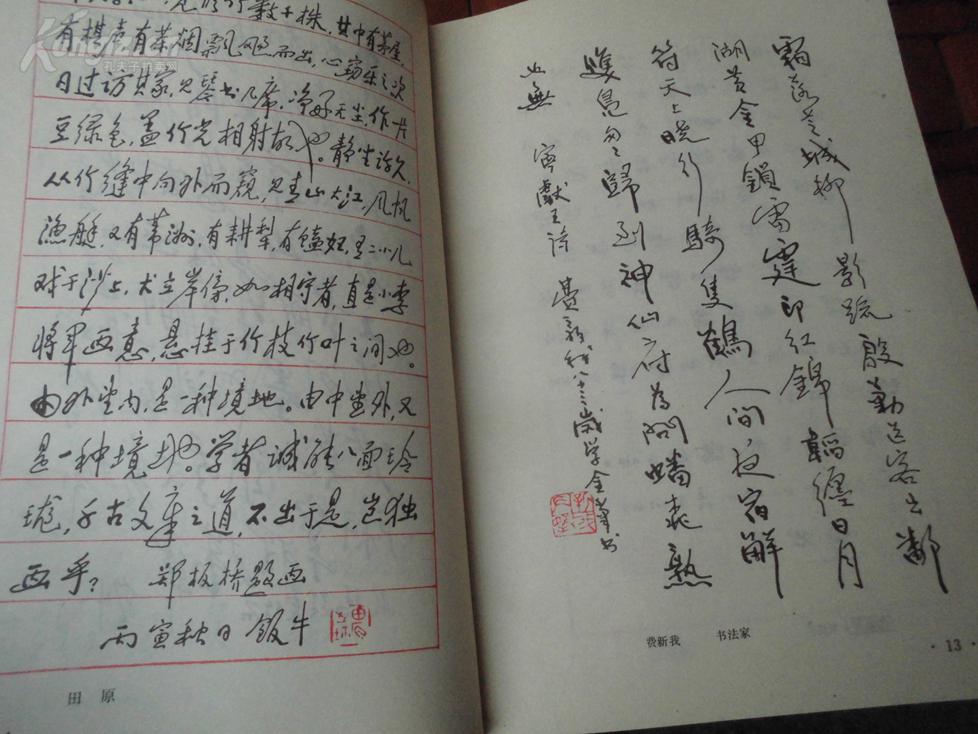 有棋声有茶烟飘飏而出,心窃乐之次
日过访其家,见琴书几席,净好无尘,作片
豆绿色,盖竹光相射故也。静坐许久,
从竹缝中向外而窥,见青山大江,风帆
渔艇,又有苇洲,有耕犁,有馌妇,有二小儿
戏于沙上,犬立岸傍,如相守者,直是小李
将军画意,悬挂于竹枝竹叶之间也。
由外望内,是一种境地。由中望外,又
是一种境地。学者诚能八面玲
珑,千古文章之道,不出于是,岂独
画乎?　郑板桥题画
丙寅秋日　饭牛
田原
霜落芜城柳影疏殷勤送客出鄱
湖黄金甲锁雷霆印红锦韬缠日月
符天上晓行骑隻鹤人间夜宿解
双凫匆匆归到神仙府为问蟠桃熟
也无
宁献王诗　费新我八十三岁学金笔书
费新我　书法家
·13·
孔夫子拍卖网